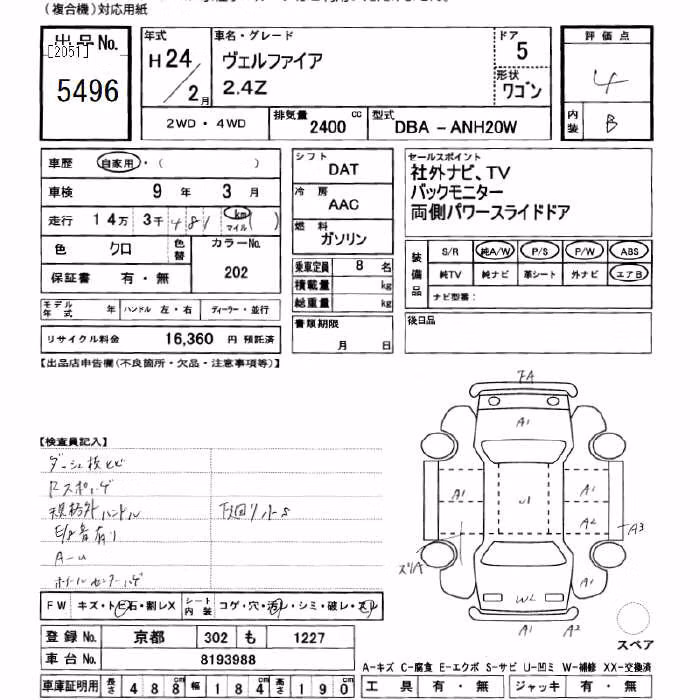 (複合機)対応用紙
出品No.
[2051]
5496
年式
H24/2月
車名・グレード
ヴェルファイア
2.4Z
ドア
5
形状
ワゴン
評価点
4
内装
B
2WD・4WD
排気量
2400 cc
型式
DBA - ANH20W
車歴 自家用・( )
車検 9年 3月
走行 14万 3千 481 km マイル ( )
色 クロ 色替 カラーNo. 202
保証書 有・無
モデル年式 年 ハンドル 左・右 ディーラー・並行
リサイクル料金 16,360 円 預託済
シフト
DAT
冷房
AAC
燃料
ガソリン
乗車定員 8 名
積載量 kg
総重量 kg
書類期限
月 日
セールスポイント
社外ナビ、TV
バックモニター
両側パワースライドドア
装備品
S/R 純A/W P/S P/W ABS
純TV 純ナビ 革シート 外ナビ エアB
ナビ型番:
後日品
【出品店申告欄(不良箇所・欠品・注意事項等)】
【検査員記入】
規格外ハンドル
下回りサビS
A-U
FW キズ・トビ石・割レX シート内装 コゲ・穴・汚レ・シミ・破レ・スレ
登録No. 京都 302 も 1227
車台No. 8193988
車庫証明用 長さ 488cm 幅 184cm 高さ 190cm
FA
A1
A1
U1
A1
A2
A3
A1
W2
A1
A2
スペア
A-キズ C-腐食 E-エクボ S-サビ U-凹ミ W-補修 XX-交換済
工具 有・無 ジャッキ 有・無